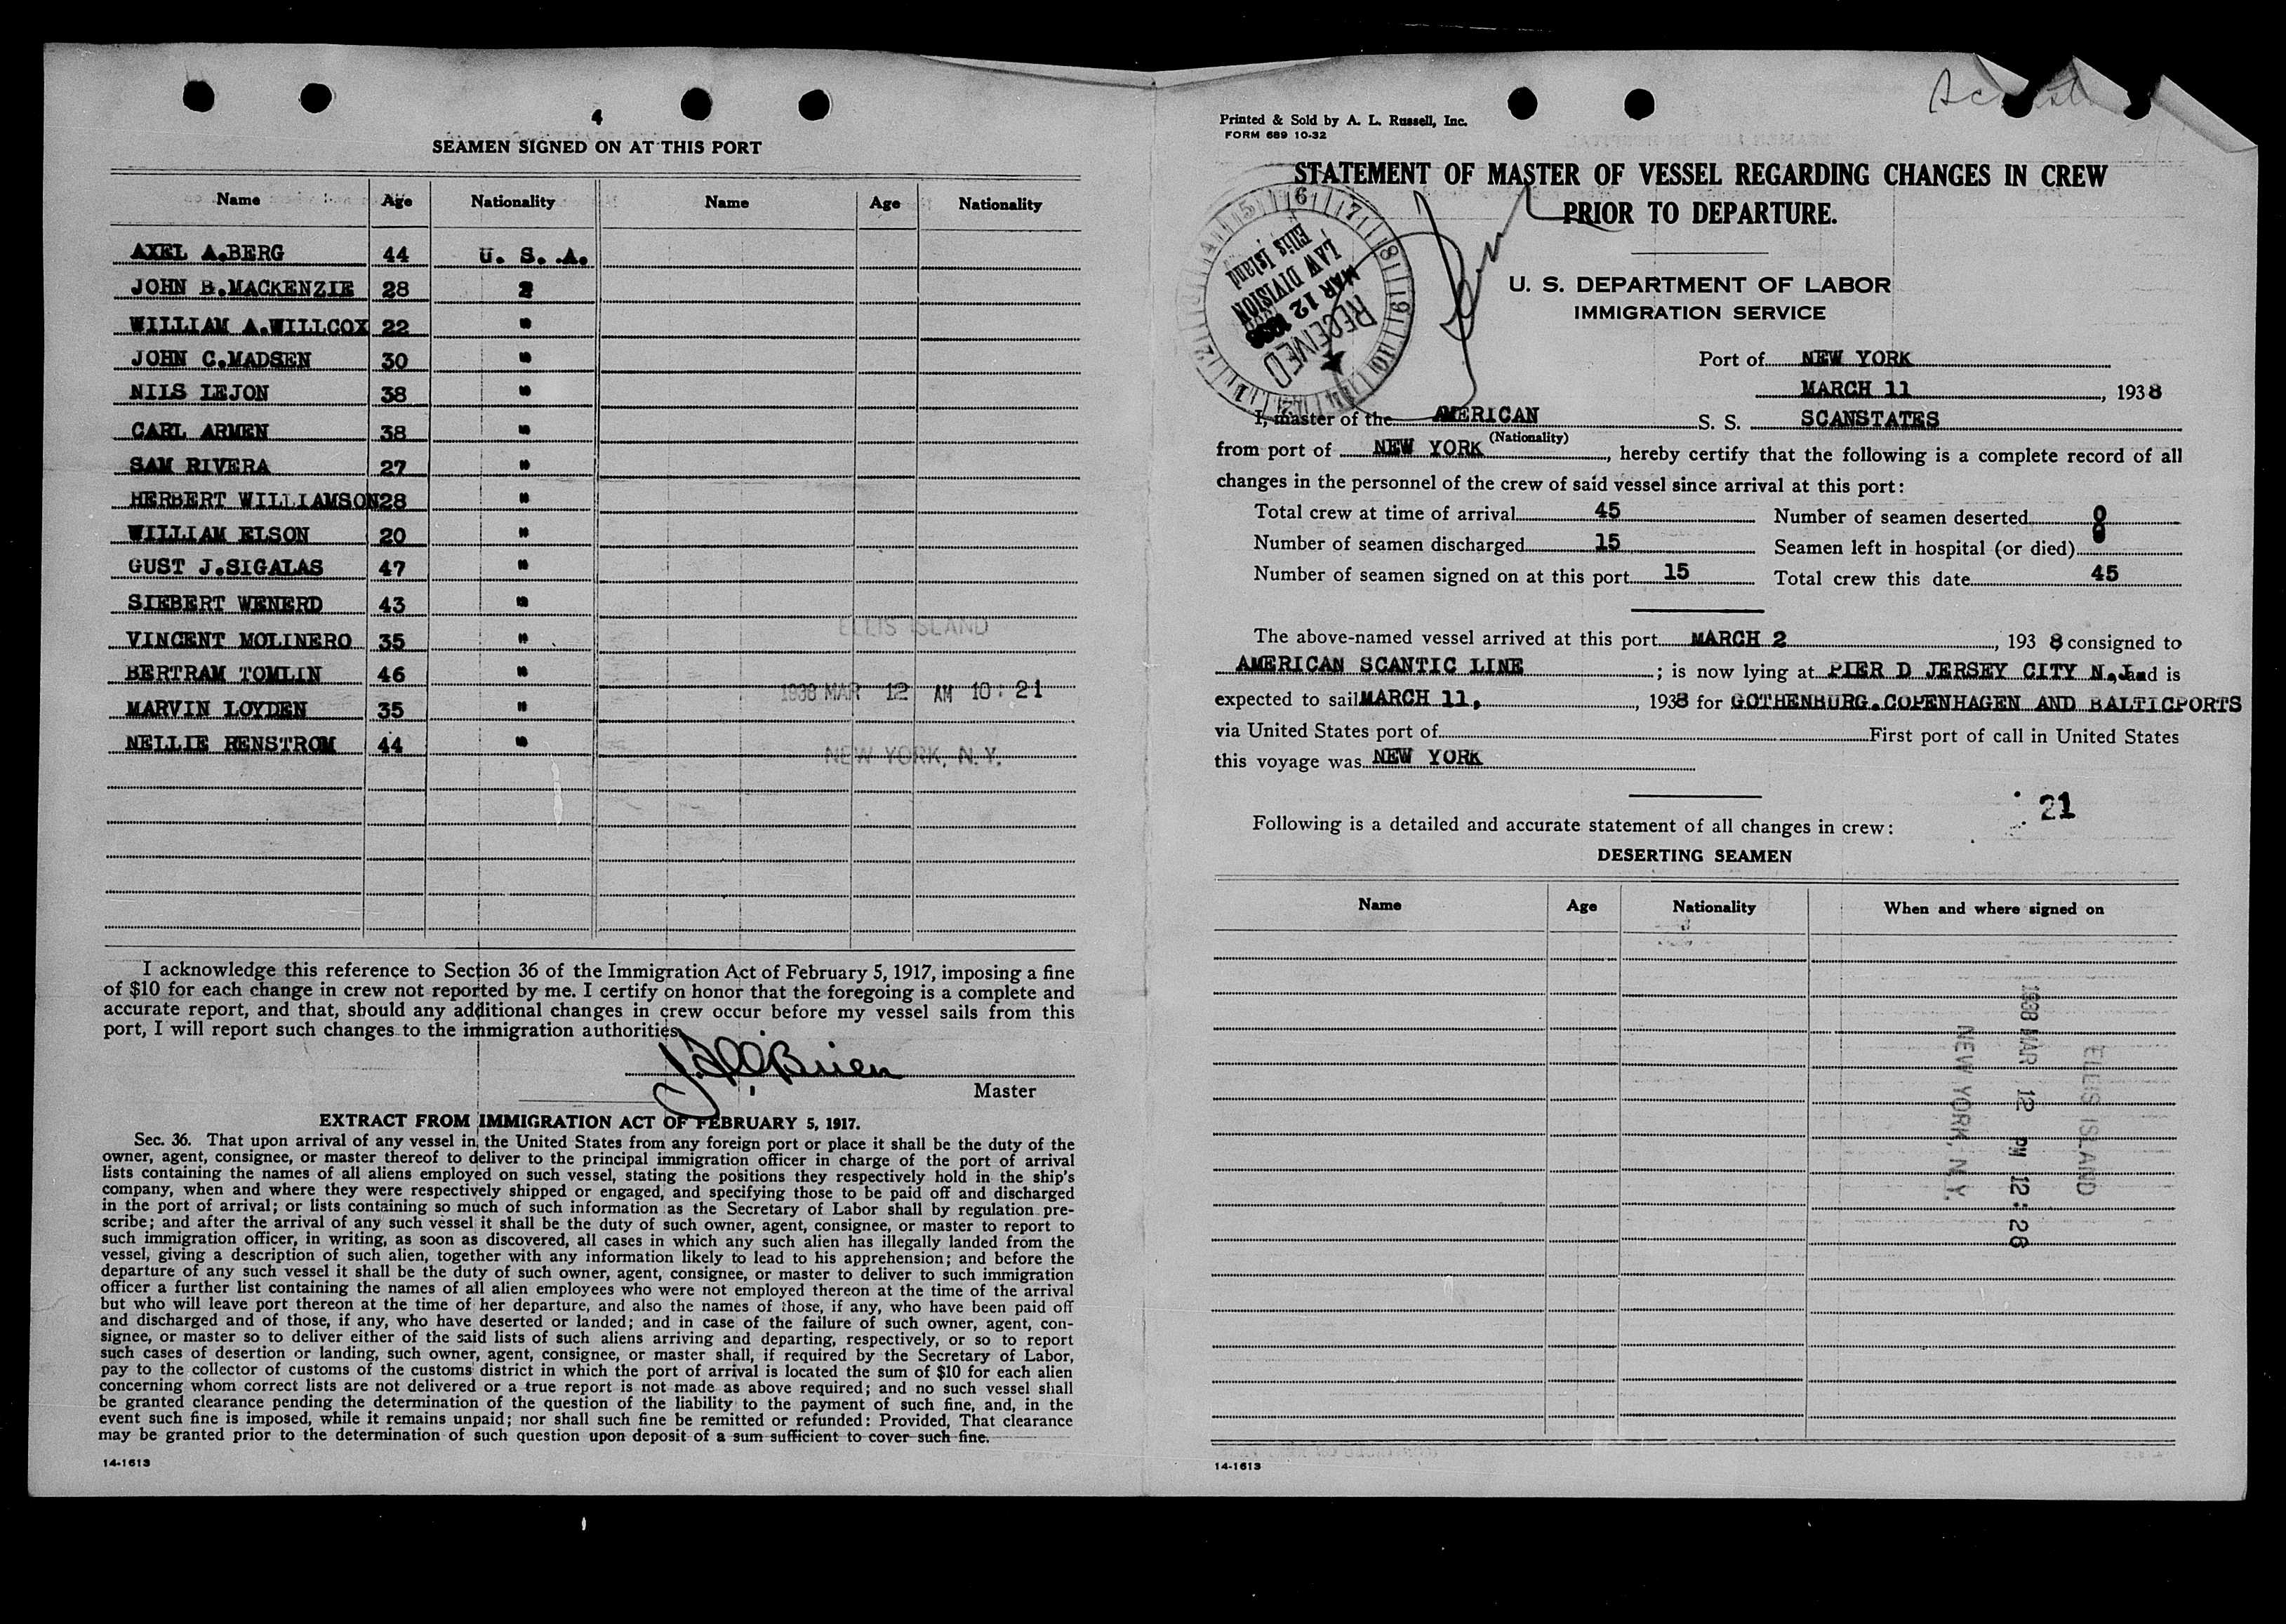 4
SEAMEN SIGNED ON AT THIS PORT
Name Age Nationality Name Age Nationality
AXEL A.BERG 44 U. S. A.
JOHN B.MACKENZIE 28 "
WILLIAM A.WILLCOX 22 "
JOHN C.MADSEN 30 "
NILS LEJON 38 "
CARL ARMEN 38 "
SAM RIVERA 27 "
HERBERT WILLIAMSON 28 "
WILLIAM ELSON 20 "
GUST J.SIGALAS 47 "
SIEBERT WENERD 43 "
VINCENT MOLINERO 35 "
BERTRAM TOMLIN 46 "
MARVIN LOYDEN 35 "
NELLIE RENSTROM 44 "
ELLIS ISLAND
1938 MAR 12 AM 10:21
NEW YORK, N.Y.
I acknowledge this reference to Section 36 of the Immigration Act of February 5, 1917, imposing a fine
of $10 for each change in crew not reported by me. I certify on honor that the foregoing is a complete and
accurate report, and that, should any additional changes in crew occur before my vessel sails from this
port, I will report such changes to the immigration authorities.
O'Brien
Master
EXTRACT FROM IMMIGRATION ACT OF FEBRUARY 5, 1917.
Sec. 36. That upon arrival of any vessel in the United States from any foreign port or place it shall be the duty of the
owner, agent, consignee, or master thereof to deliver to the principal immigration officer in charge of the port of arrival
lists containing the names of all aliens employed on such vessel, stating the positions they respectively hold in the ship's
company, when and where they were respectively shipped or engaged, and specifying those to be paid off and discharged
in the port of arrival; or lists containing so much of such information as the Secretary of Labor shall by regulation pre-
scribe; and after the arrival of any such vessel it shall be the duty of such owner, agent, consignee, or master to report to
such immigration officer, in writing, as soon as discovered, all cases in which any such alien has illegally landed from the
vessel, giving a description of such alien, together with any information likely to lead to his apprehension; and before the
departure of any such vessel it shall be the duty of such owner, agent, consignee, or master to deliver to such immigration
officer a further list containing the names of all alien employees who were not employed thereon at the time of the arrival
but who will leave port thereon at the time of her departure, and also the names of those, if any, who have been paid off
and discharged and of those, if any, who have deserted or landed; and in case of the failure of such owner, agent, con-
signee, or master so to deliver either of the said lists of such aliens arriving and departing, respectively, or so to report
such cases of desertion or landing, such owner, agent, consignee, or master shall, if required by the Secretary of Labor,
pay to the collector of customs of the customs district in which the port of arrival is located the sum of $10 for each alien
concerning whom correct lists are not delivered or a true report is not made as above required; and no such vessel shall
be granted clearance pending the determination of the question of the liability to the payment of such fine, and, in the
event such fine is imposed, while it remains unpaid; nor shall such fine be remitted or refunded: Provided, That clearance
may be granted prior to the determination of such question upon deposit of a sum sufficient to cover such fine.
14-1613
Printed & Sold by A. L. Russell, Inc.
FORM 689 10-32
STATEMENT OF MASTER OF VESSEL REGARDING CHANGES IN CREW
PRIOR TO DEPARTURE.
U. S. DEPARTMENT OF LABOR
IMMIGRATION SERVICE
RECEIVED
MAR 12 1938
LAW DIVISION
Ellis Island
Port of NEW YORK
MARCH 11, 1938
I, master of the AMERICAN S. S. SCANSTATES
(Nationality)
from port of NEW YORK, hereby certify that the following is a complete record of all
changes in the personnel of the crew of said vessel since arrival at this port:
Total crew at time of arrival 45 Number of seamen deserted 0
Number of seamen discharged 15 Seamen left in hospital (or died) 0
Number of seamen signed on at this port 15 Total crew this date 45
The above-named vessel arrived at this port MARCH 2, 1938 consigned to
AMERICAN SCANTIC LINE; is now lying at PIER D JERSEY CITY N.J. and is
expected to sail MARCH 11, 1938 for GOTHENBURG.COPENHAGEN AND BALTICPORTS
via United States port of First port of call in United States
this voyage was NEW YORK
21
Following is a detailed and accurate statement of all changes in crew:
DESERTING SEAMEN
Name Age Nationality When and where signed on
ELLIS ISLAND
1938 MAR 12 PM 12:26
NEW YORK, N.Y.
14-1613